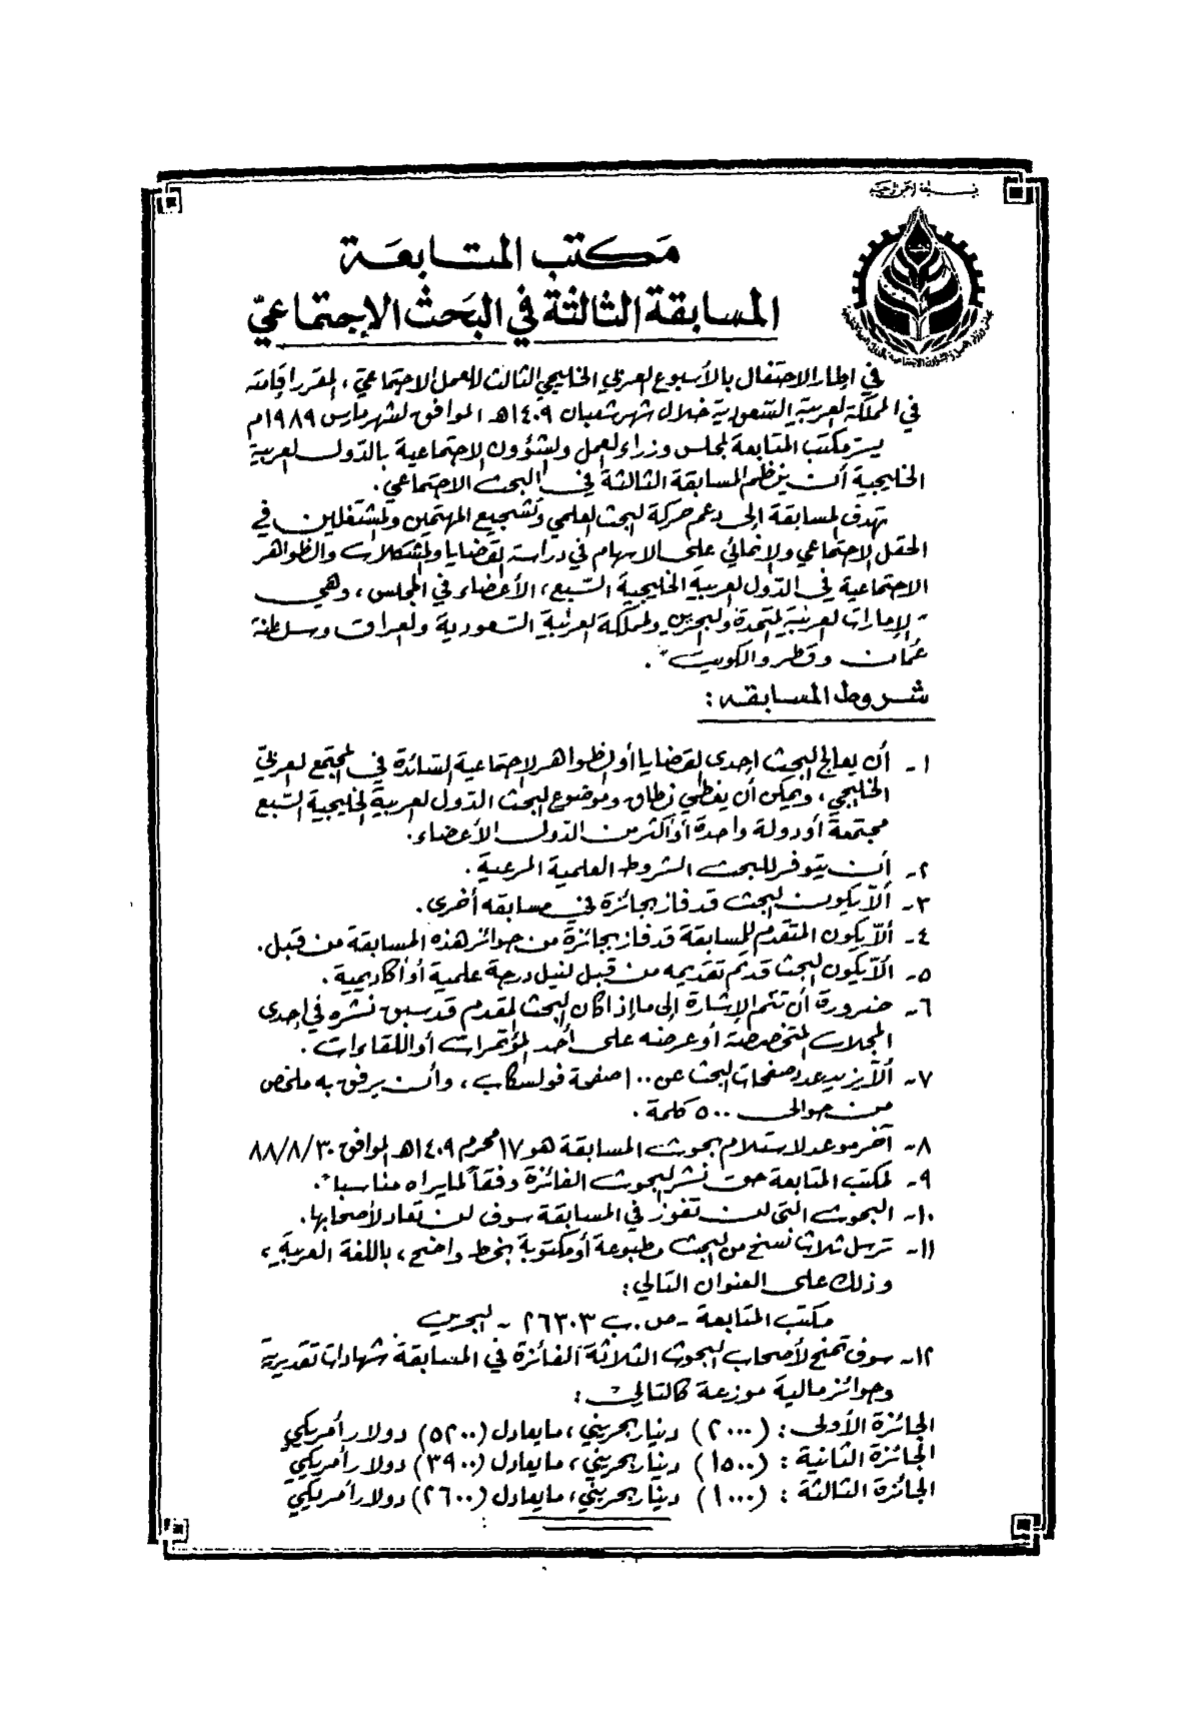 بسم الله الرحمن الرحيم
مكتب المتابعة
المسابقة الثالثة في البحث الإجتماعيّ
في اطار الاحتفال بالأسبوع العربي الخليجي الثالث للعمل الاجتماعيّ، المقرر إقامته
في المملكة العربية السعودية خلال شهر شعبان ١٤٠٩هـ الموافق لشهر مارس ١٩٨٩م
يسر مكتب المتابعة لمجلس وزراء العمل والشؤون الاجتماعية بالدّول العربية
الخليجية أن ينظم المسابقة الثالثة في البحث الاجتماعيّ.
تهدف المسابقة إلى دعم حركة البحث العلمي وتشجيع المهتمين والمشتغلين في
الحقل الاجتماعي والإنمائي على الاسهام في دراسة القضايا والمشكلات والظواهر
الاجتماعية في الدّول العربية الخليجية السّبع، الأعضاء في المجلس، وهي
"الإمارات العربية المتحدة والبحرين والمملكة العربية السعودية والعراق وسلطنة
عُمان وقطر والكويت".
شروط المسابقه:
١- أن يعالج البحث إحدى القضايا أو الظواهر الاجتماعية السّائدة في المجتمع العربيّ
الخليجي، ويمكن أن يغطي نطاق وموضوع البحث الدّول العربية الخليجية السّبع
مجتمعة أو دولة واحدة أو أكثر من الدّول الأعضاء.
٢- أن يتوفر للبحث الشروط العلمية المرعية.
٣- ألاّ يكون البحث قد فاز بجائزة في مسابقه أخرى.
٤- ألاّ يكون المتقدّم للمسابقة قد فاز بجائزة من جوائز هذه المسابقة من قبل.
٥- ألاّ يكون البحث قد تم تقديمه من قبل لنيل درجة علمية أو أكاديمية.
٦- ضرورة أن تتم الإشارة إلى ما إذا كان البحث المقدم قد سبق نشره في إحدى
المجلات المتخصصة أو عرضه على أحد المؤتمرات أو اللقاءات.
٧- ألاّ يزيد عدد صفحات البحث عن ١٠٠ صفحة فولسكاب، وأن يرفق به ملخص
من حوالى ٥٠٠ كلمة.
٨- آخر موعد لاستلام بحوث المسابقة هو ١٧ محرم ١٤٠٩هـ الموافق ٨٨/٨/٣٠
٩- لمكتب المتابعة حق نشر البحوث الفائزة وفقاً لما يراه مناسبا".
١٠- البحوث التى لن تفوز في المسابقة سوف لن تعاد لأصحابها.
١١- ترسل ثلاث نسخ من البحث مطبوعة أو مكتوبة بخط واضح، باللغة العربية،
وذلك على العنوان التالي:
مكتب المتابعة - ص.ب ٢٦٣٠٣ - البحرين
١٢- سوف تمنح لأصحاب البحوث الثلاثة الفائزة في المسابقة شهادات تقديرية
وجوائز مالية موزعة كالتالي:
الجائزة الأولى: (٢٠٠٠) دينار بحريني، ما يعادل (٥٢٠٠) دولار أمريكي
الجائزة الثانية: (١٥٠٠) دينار بحريني، ما يعادل (٣٩٠٠) دولار أمريكي
الجائزة الثالثة: (١٠٠٠) دينار بحريني، ما يعادل (٢٦٠٠) دولار أمريكي